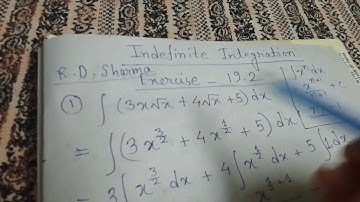 Indefinite Integration
R.D. Sharma
Exercise - 19.2
① ∫ (3x√x + 4√x + 5) dx
= ∫ (3x^{3/2} + 4x^{1/2} + 5) dx
= 3 ∫ x^{3/2} dx + 4 ∫ x^{1/2} dx + 5 ∫ 1 dx
∫ xⁿ dx